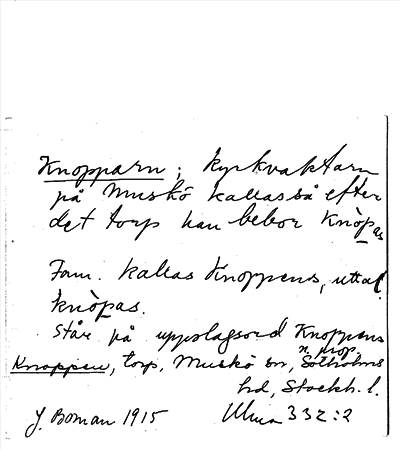 Knopparn ; kyrkvaktarn
på Muskö kallas så efter
det torp han bebor Knòpas
Fam. kallas Knoppens, uttal.
knòpas.
Står på uppslagsord Knoppens
n. prop.
Knoppen, torp, Muskö sn, Sotholms
hd, Stockh. l.
J. Boman 1915 Ulma 332:2